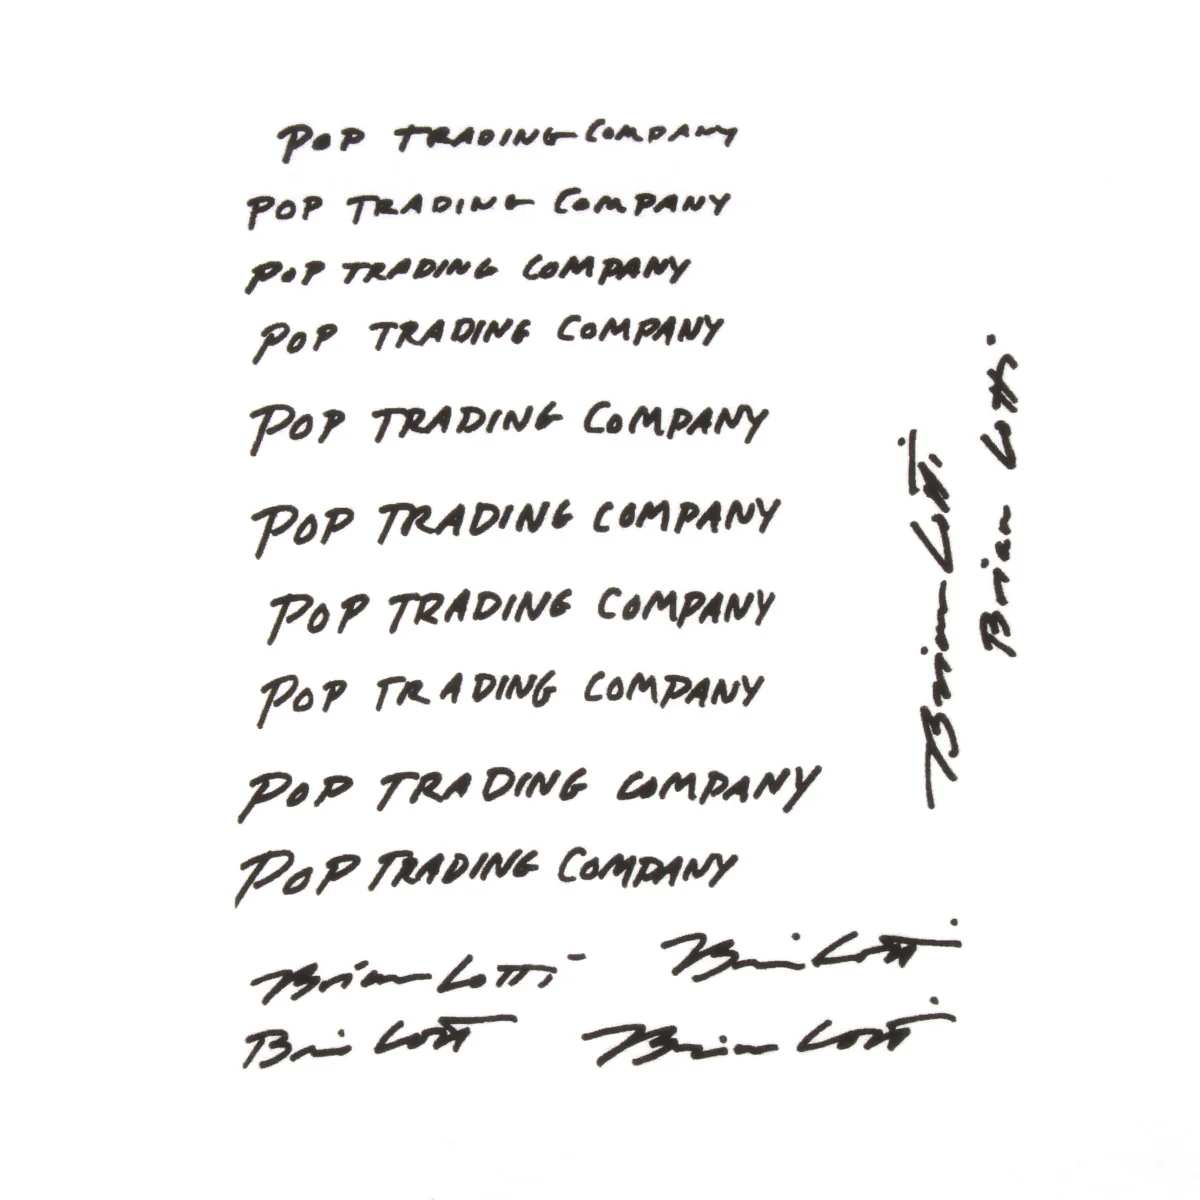 POP TRADING COMPANY
POP TRADING COMPANY
POP TRADING COMPANY
POP TRADING COMPANY
POP TRADING COMPANY
POP TRADING COMPANY
POP TRADING COMPANY
POP TRADING COMPANY
POP TRADING COMPANY
POP TRADING COMPANY
Brian Lotti
Brian Lotti
Brian Lotti
Brian Lotti
Brian Lotti
Brian Lotti